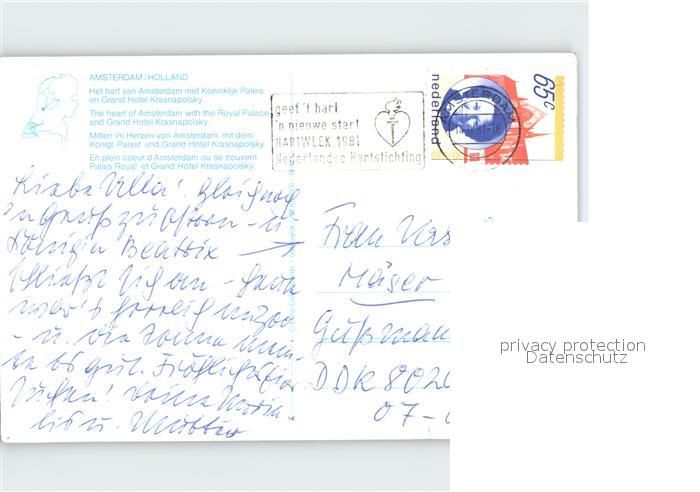 AMSTERDAM/HOLLAND
Het hart van Amsterdam met Koninklijk Paleis
en Grand Hotel Krasnapolsky.
The heart of Amsterdam with the Royal Palace
and Grand Hotel Krasnapolsky.
Mitten im Herzen von Amsterdam, mit dem
Königl. Palast und Grand Hotel Krasnapolsky.
En plein coeur d'Amsterdam où se trouvent
Palais Royal et Grand Hôtel Krasnapolsky.
geef 't hart
'n nieuwe start
HARTWEEK 1981
Nederlandse Hartstichting
AMSTERDAM
nederland
65c
Liebe Ulla! Gleich noch
'n Gruß zu Ostern - u.
Königin Beatrix
schließt sich an -
- u. die Sonne
es gut. Fröhliches
Suchen! Deine
u. Mutter
Frau
Mäser
DDR 8020
07-
privacy protection
Datenschutz